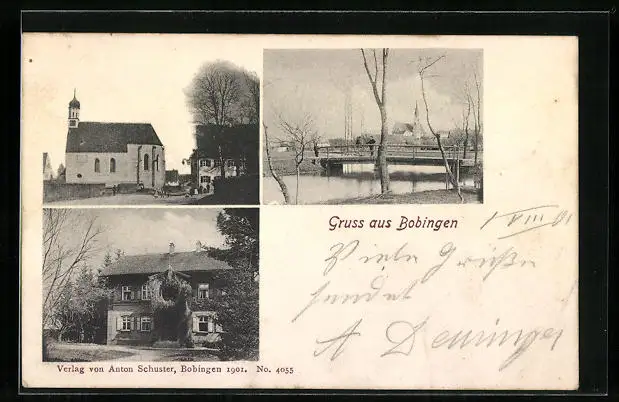 Gruss aus Bobingen
1 VIII 01
Viele Grüße
sendet
A Deuringer
Verlag von Anton Schuster, Bobingen 1901. No. 4055